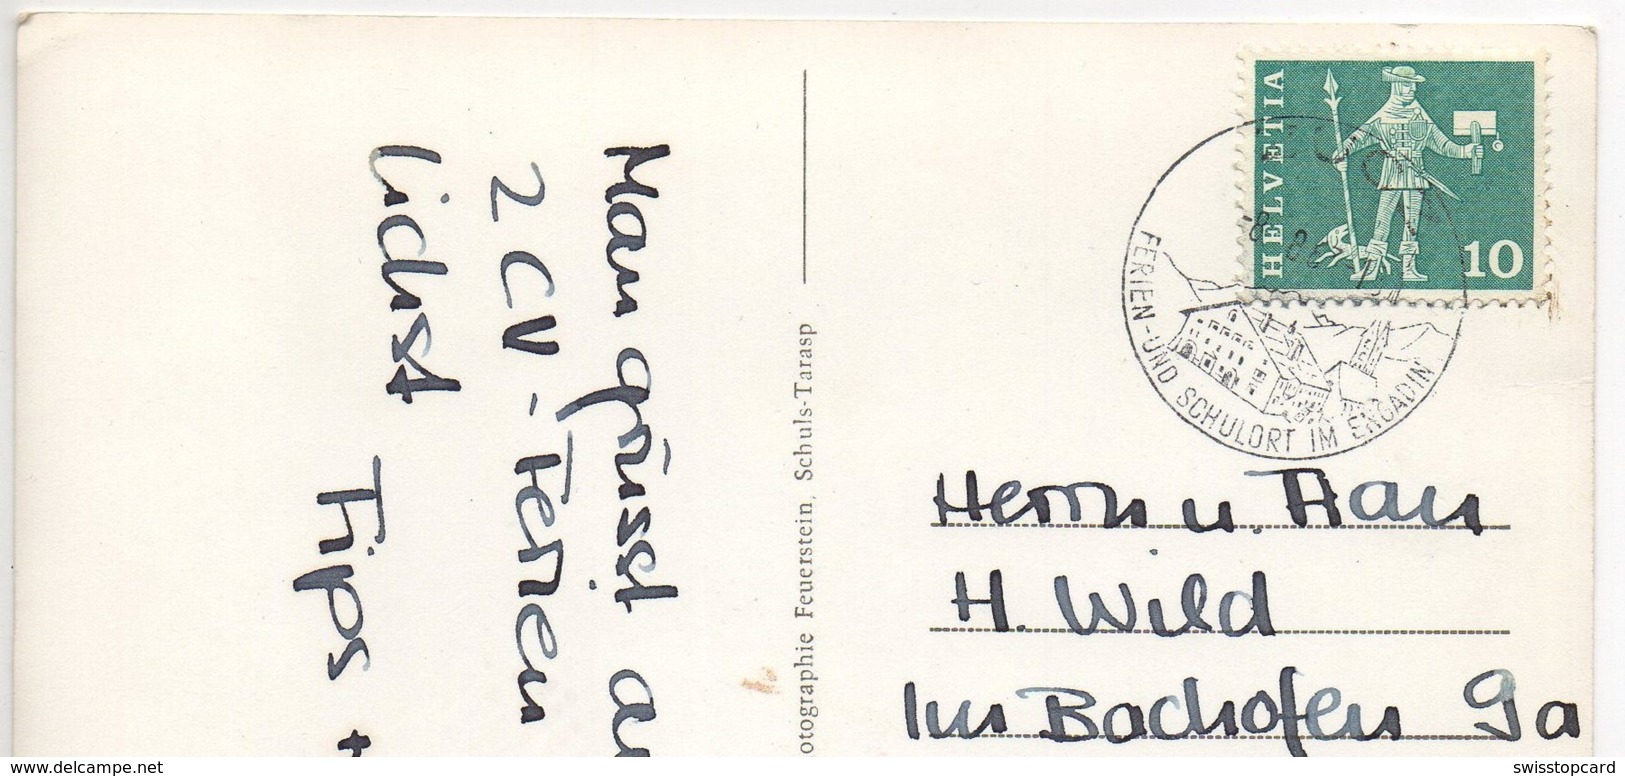 HELVETIA
10
FERIEN-UND SCHULORT IM ENGADIN
Man grüsst
2 CV-Ferien
Tips +
otographie Feuerstein, Schuls-Tarasp
Herrn u. Frau
H. Wild
Im Bachofen 9a
www.delcampe.net
swisstopcard